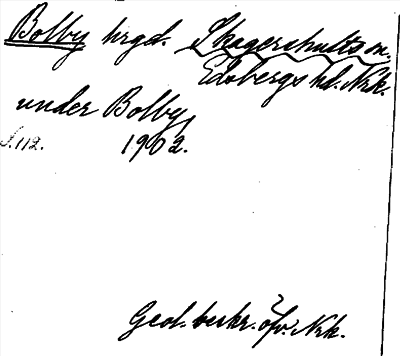 Bolby hrgd. Skagershults sn.
Edsbergs hd. Nrk.
under Bolby
S. 112. 1902.
Geol. beskr. öfv. Nrk.